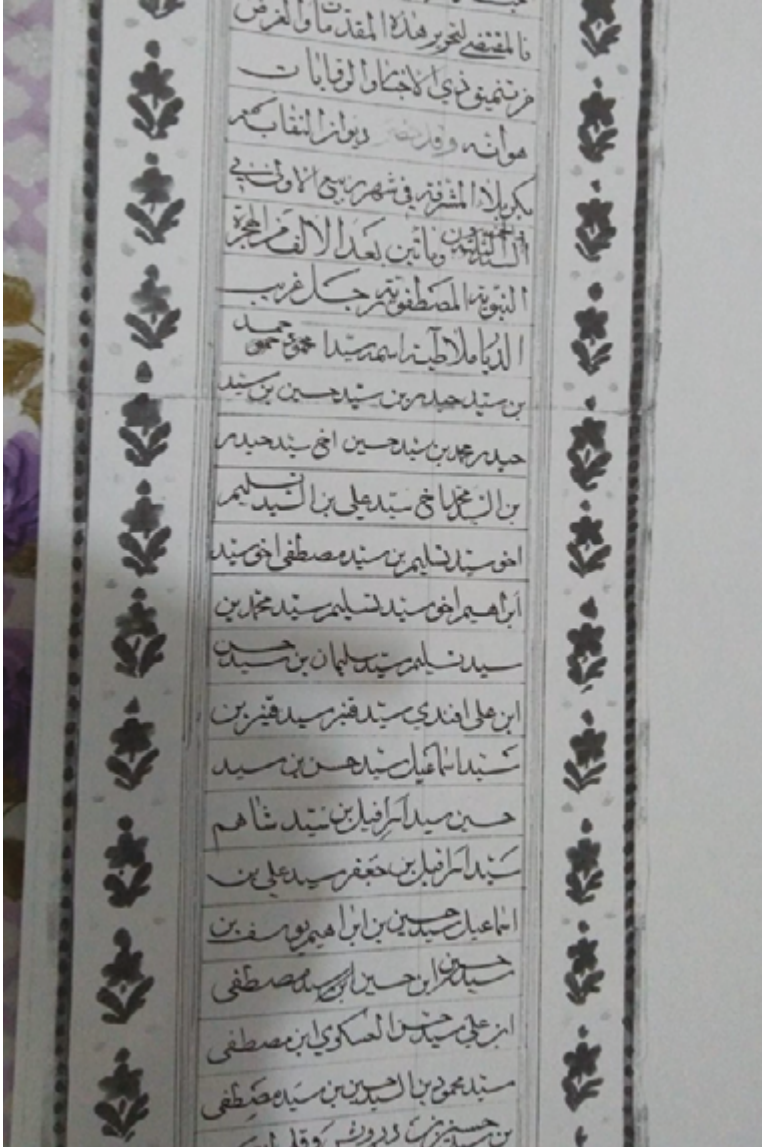 فالمقتضي لتحرير هذه المقدمات والغرض
من تنميق ذي الاختار والرقايات
هوانه وقد حضر ديوان النقابة
بكربلاء المشرفة في شهر ربيع الاول في
السنة وماتين بعد الالف من الهجرة
النبوية المصطفوية رجل غريب
الديا ملاطية اسمه سيد محمود
بن سيد حيدر بن سيد حسين بن سيد
حيدر محمد بن سيد حسين اخي سيد حيدر
بن السيد محمد اخي سيد علي بن السيد تسليم
اخو سيد تسليم بن سيد مصطفى اخو سيد
ابراهيم اخو سيد تسليم سيد محمد بن
سيد تسليم سيد سليمان بن سيد حسن
ابن علي افندي سيد قنبر سيد قنبر بن
سيد اسماعيل سيد حسن بن سيد
حسين سيد اسرافيل بن سيد شاهم
سيد اسرافيل بن جعفر سيد علي بن
اسماعيل سيد حسين بن ابراهيم يوسف بن
سيد حسين ابن حسين ابن سيد مصطفى
ابن علي سيد حسن العسكوي ابن مصطفى
سيد محمود بن السيد حسين بن سيد مصطفى
بن سيد حسين درويش